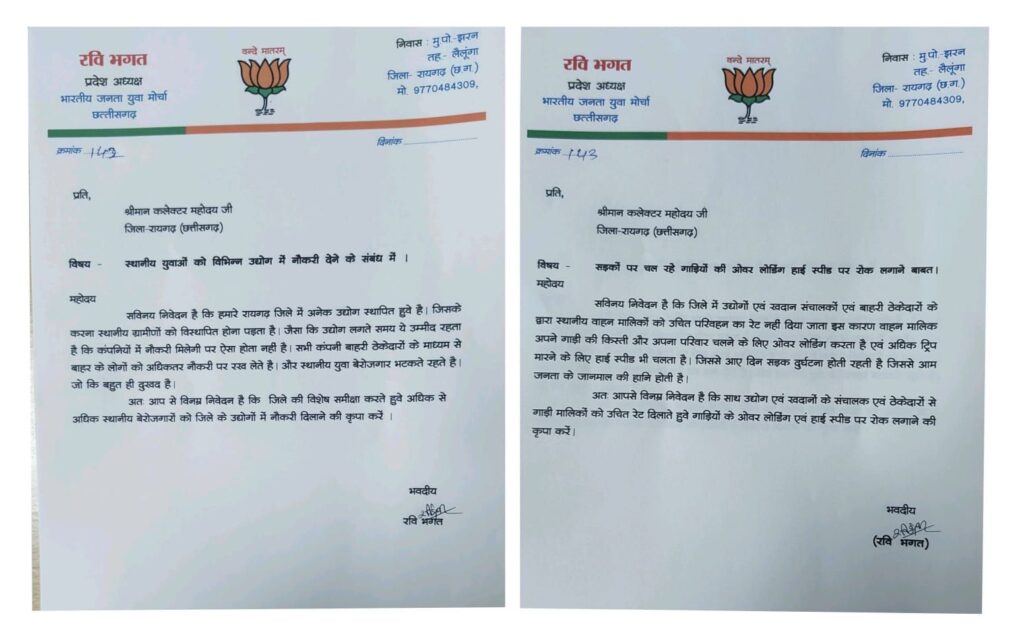 रवि भगत
प्रदेश अध्यक्ष
भारतीय जनता युवा मोर्चा
छत्तीसगढ़
वन्दे मातरम्
निवास : मु.पो.-झरन
तह.- लैलूंगा
जिला- रायगढ़ (छ.ग.)
मो. 9770484309,
क्रमांक 142
दिनांक
प्रति,
श्रीमान कलेक्टर महोदय जी
जिला-रायगढ़ (छत्तीसगढ़)
विषय - स्थानीय युवाओं को विभिन्न उद्योग में नौकरी देने के संबंध में ।
महोदय
सविनय निवेदन है कि हमारे रायगढ़ जिले में अनेक उद्योग स्थापित हुवे है। जिसके
करना स्थानीय ग्रामीणों को विस्थापित होना पड़ता है। जैसा कि उद्योग लगते समय ये उम्मीद रहता
है कि कंपनियों में नौकरी मिलेगी पर ऐसा होता नही है। सभी कंपनी बाहरी ठेकेदारों के माध्यम से
बाहर के लोगों को अधिकतर नौकरी पर रख लेते है। और स्थानीय युवा बेरोजगार भटकते रहते है।
जो कि बहुत ही दुखद है।
अतः आप से विनम्र निवेदन है कि जिले की विशेष समीक्षा करते हुवे अधिक से
अधिक स्थानीय बेरोजगारों को जिले के उद्योगों में नौकरी दिलाने की कृपा करें ।
भवदीय
रवि भगत
रवि भगत
प्रदेश अध्यक्ष
भारतीय जनता युवा मोर्चा
छत्तीसगढ़
वन्दे मातरम्
निवास : मु.पो.-झरन
तह.- लैलूंगा
जिला- रायगढ़ (छ.ग.)
मो. 9770484309,
क्रमांक 143
दिनांक
प्रति,
श्रीमान कलेक्टर महोदय जी
जिला-रायगढ़ (छत्तीसगढ़)
विषय - सड़कों पर चल रहे गाड़ियों की ओवर लोडिंग हाई स्पीड पर रोक लगाने बाबत।
महोदय
सविनय निवेदन है कि जिले में उद्योगों एवं खदान संचालकों एवं बाहरी ठेकेदारों के
द्वारा स्थानीय वाहन मालिकों को उचित परिवहन का रेट नही दिया जाता इस कारण वाहन मालिक
अपने गाड़ी की किस्ती और अपना परिवार चलने के लिए ओवर लोडिंग करता है एवं अधिक ट्रिप
मारने के लिए हाई स्पीड भी चलता है। जिससे आए दिन सड़क दुर्घटना होती रहती है जिससे आम
जनता के जानमाल की हानि होती है।
अतः आपसे विनम्र निवेदन है कि साथ उद्योग एवं खदानों के संचालक एवं ठेकेदारों से
गाड़ी मालिकों को उचित रेट दिलाते हुवे गाड़ियों के ओवर लोडिंग एवं हाई स्पीड पर रोक लगाने की
कृपा करें।
भवदीय
(रवि भगत)